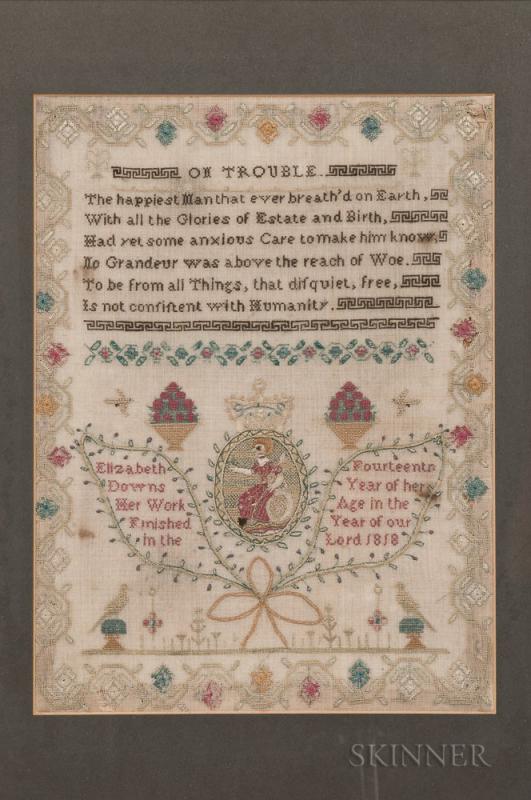 ON TROUBLE.
The happiest Man that ever breath'd on Earth,
With all the Glories of Estate and Birth,
Had yet some anxious Care to make him know,
No Grandeur was above the reach of Woe.
To be from all Things, that diſquiet, free,
Is not conſiſtent with Humanity.
Elizabeth
Downs
Her Work
Finished
in the
Fourteenth
Year of her
Age in the
Year of our
Lord 1818
SKINNER